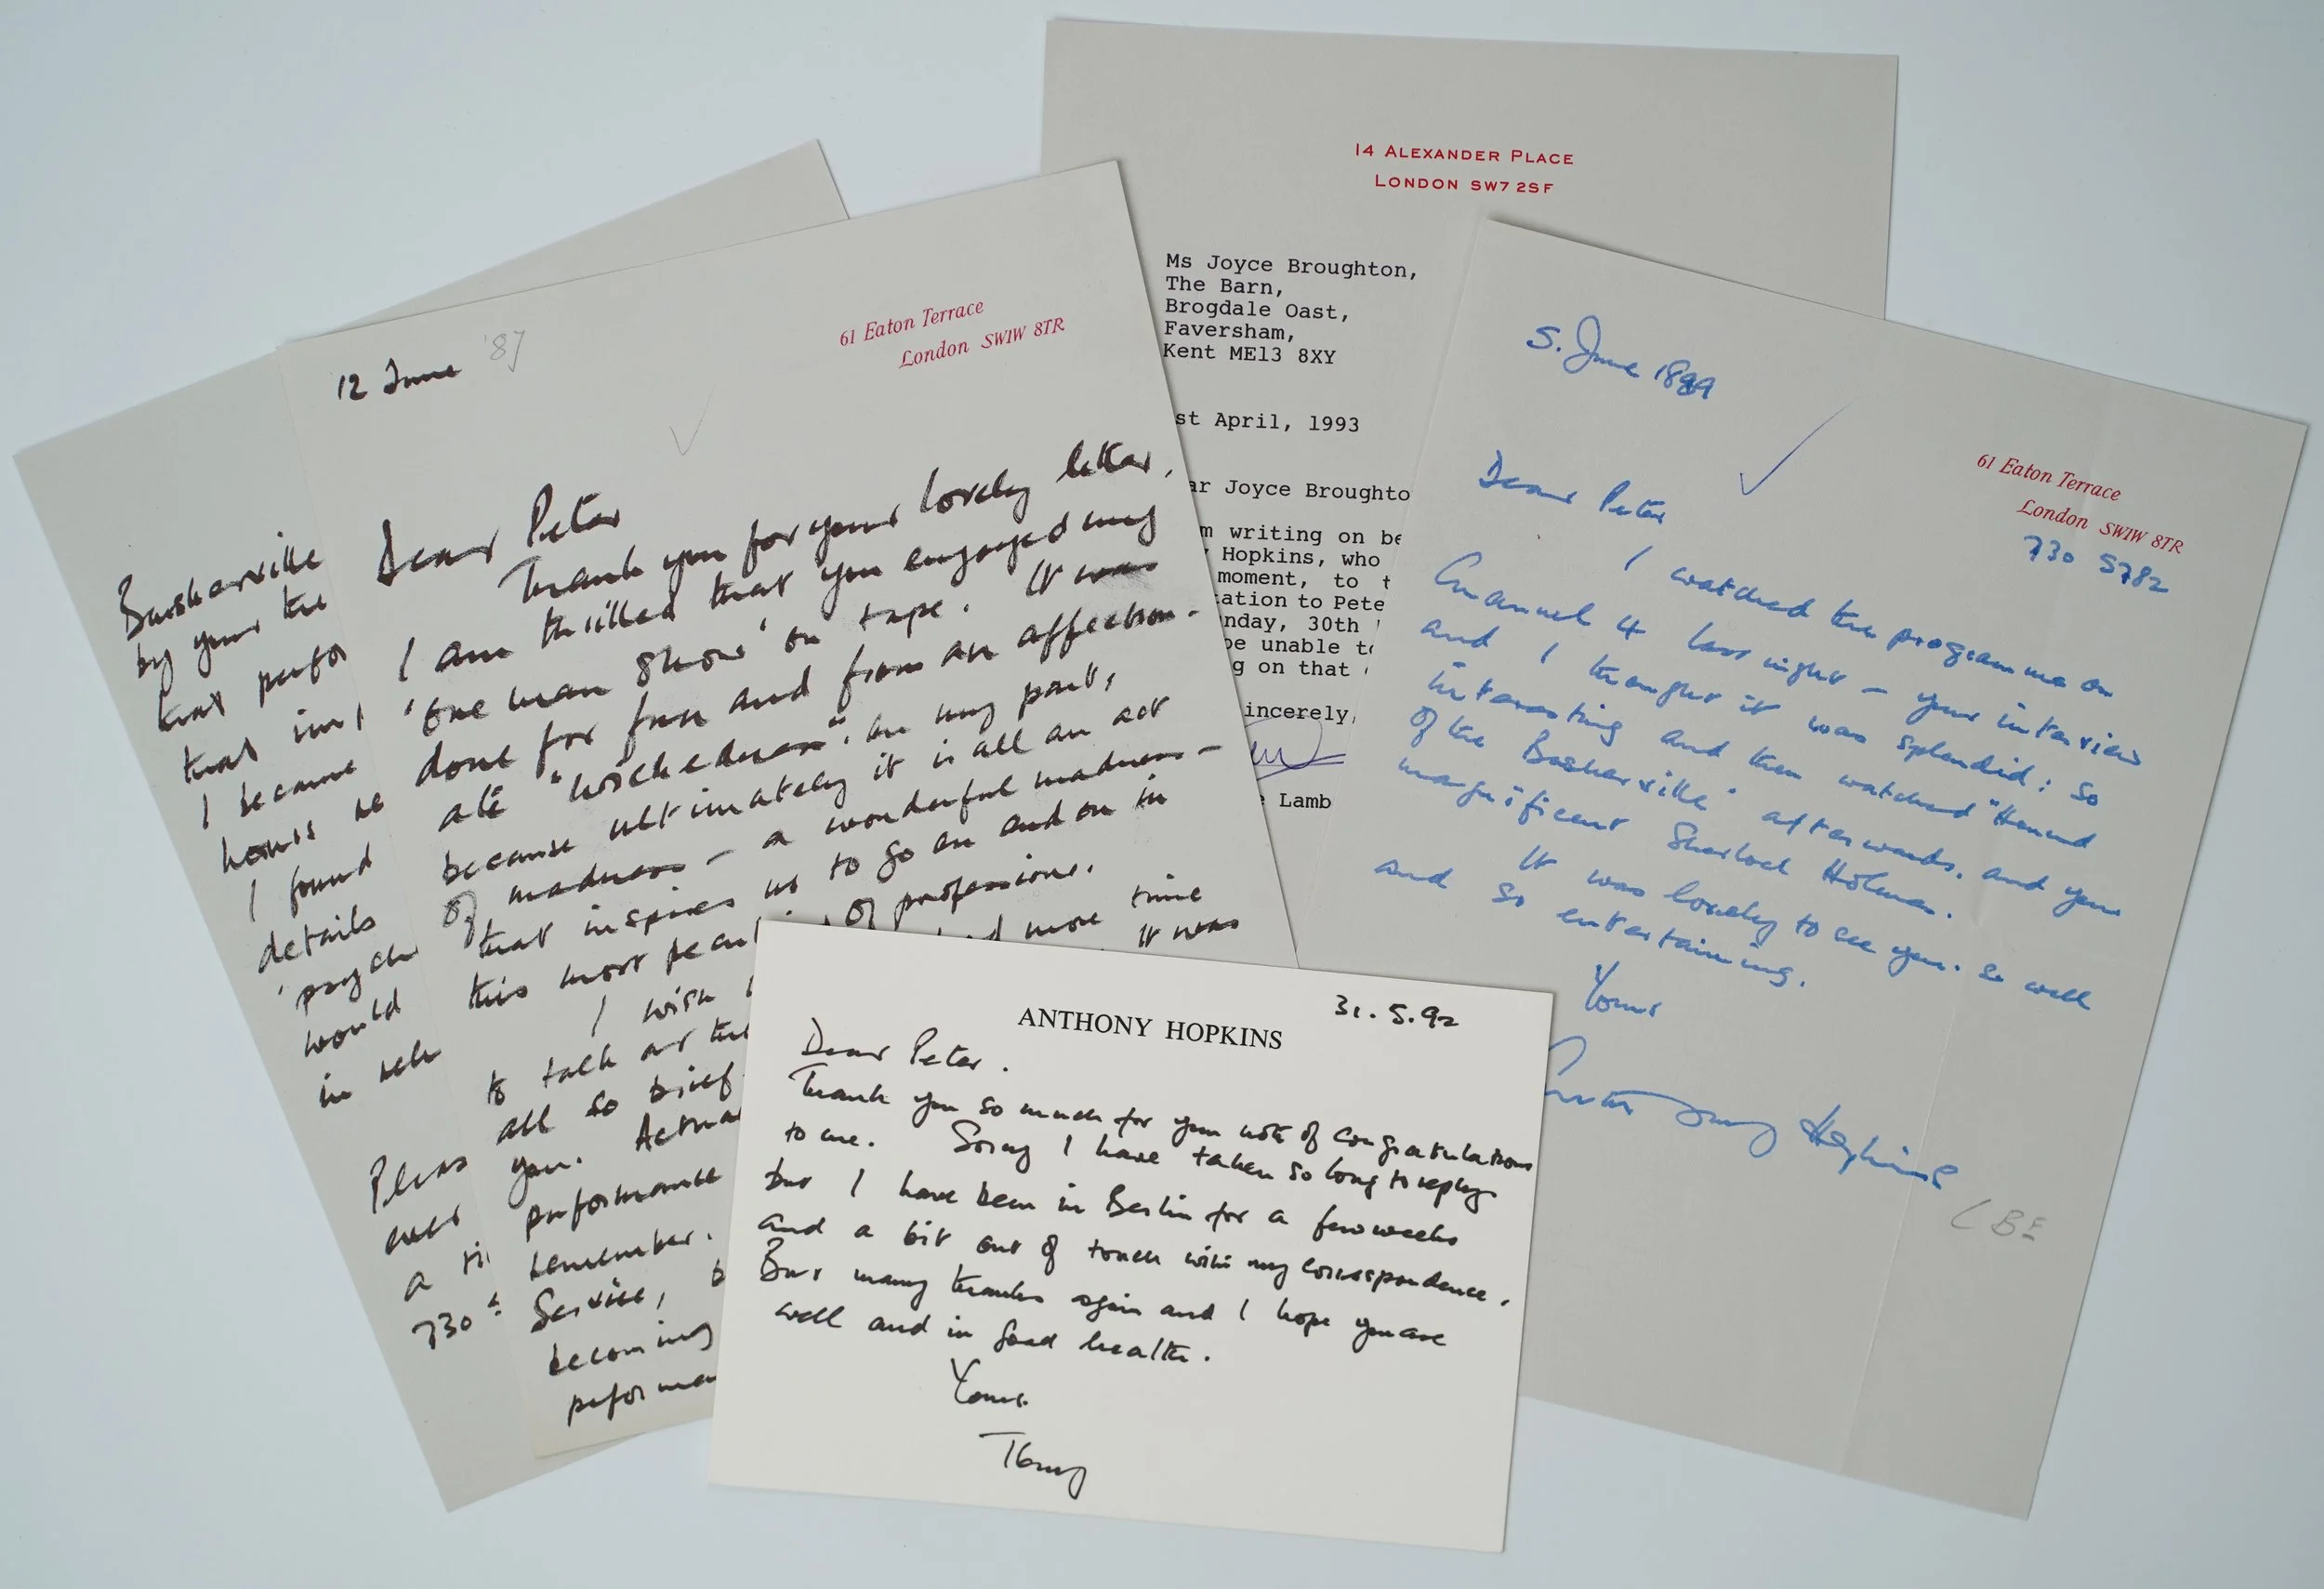 14 ALEXANDER PLACE
LONDON SW7 2SF
Ms Joyce Broughton,
The Barn,
Brogdale Oast,
Faversham,
Kent ME13 8XY
st April, 1993
ar Joyce Broughto
m writing on be
Hopkins, who
moment, to t
ation to Pete
nday, 30th
be unable to
g on that
incerely,
e Lamb
Baskerville
by your the
that perfo
that im
I became
hours
I found
details
'psych
would
in
Pleas
ever
a
730
12 June '87
61 Eaton Terrace
London SW1W 8TR
Dear Peter
Thank you for your lovely letter.
I am thrilled that you enjoyed my
'one man show' on tape. It was
done for fun and from an affection-
ate "wickedness" on my part,
because ultimately it is all an act
of madness – a wonderful madness –
that inspires us to go on and on in
this most pecul of professions.
I wish had more time
to talk at the It was
all so brief
you. Actua
performance
remember.
Service, b
becoming
performa
5. June 1989
61 Eaton Terrace
London SW1W 8TR
730 5782
Dear Peter
I watched the programme on
Channel 4 last night – your interview
and I thought it was splendid: so
interesting and then watched "Hound
of the Baskerville" afterwards, and your
magnificent Sherlock Holmes.
It was lovely to see you. so well
and so entertaining.
Yours
Tony Hopkins
CBE
ANTHONY HOPKINS
31.5.92
Dear Peter.
Thank you so much for your note of congratulations
to me. Sorry I have taken so long to reply
but I have been in Berlin for a few weeks
and a bit out of touch with my correspondence.
But many thanks again and I hope you are
well and in good health.
Yours
Tony